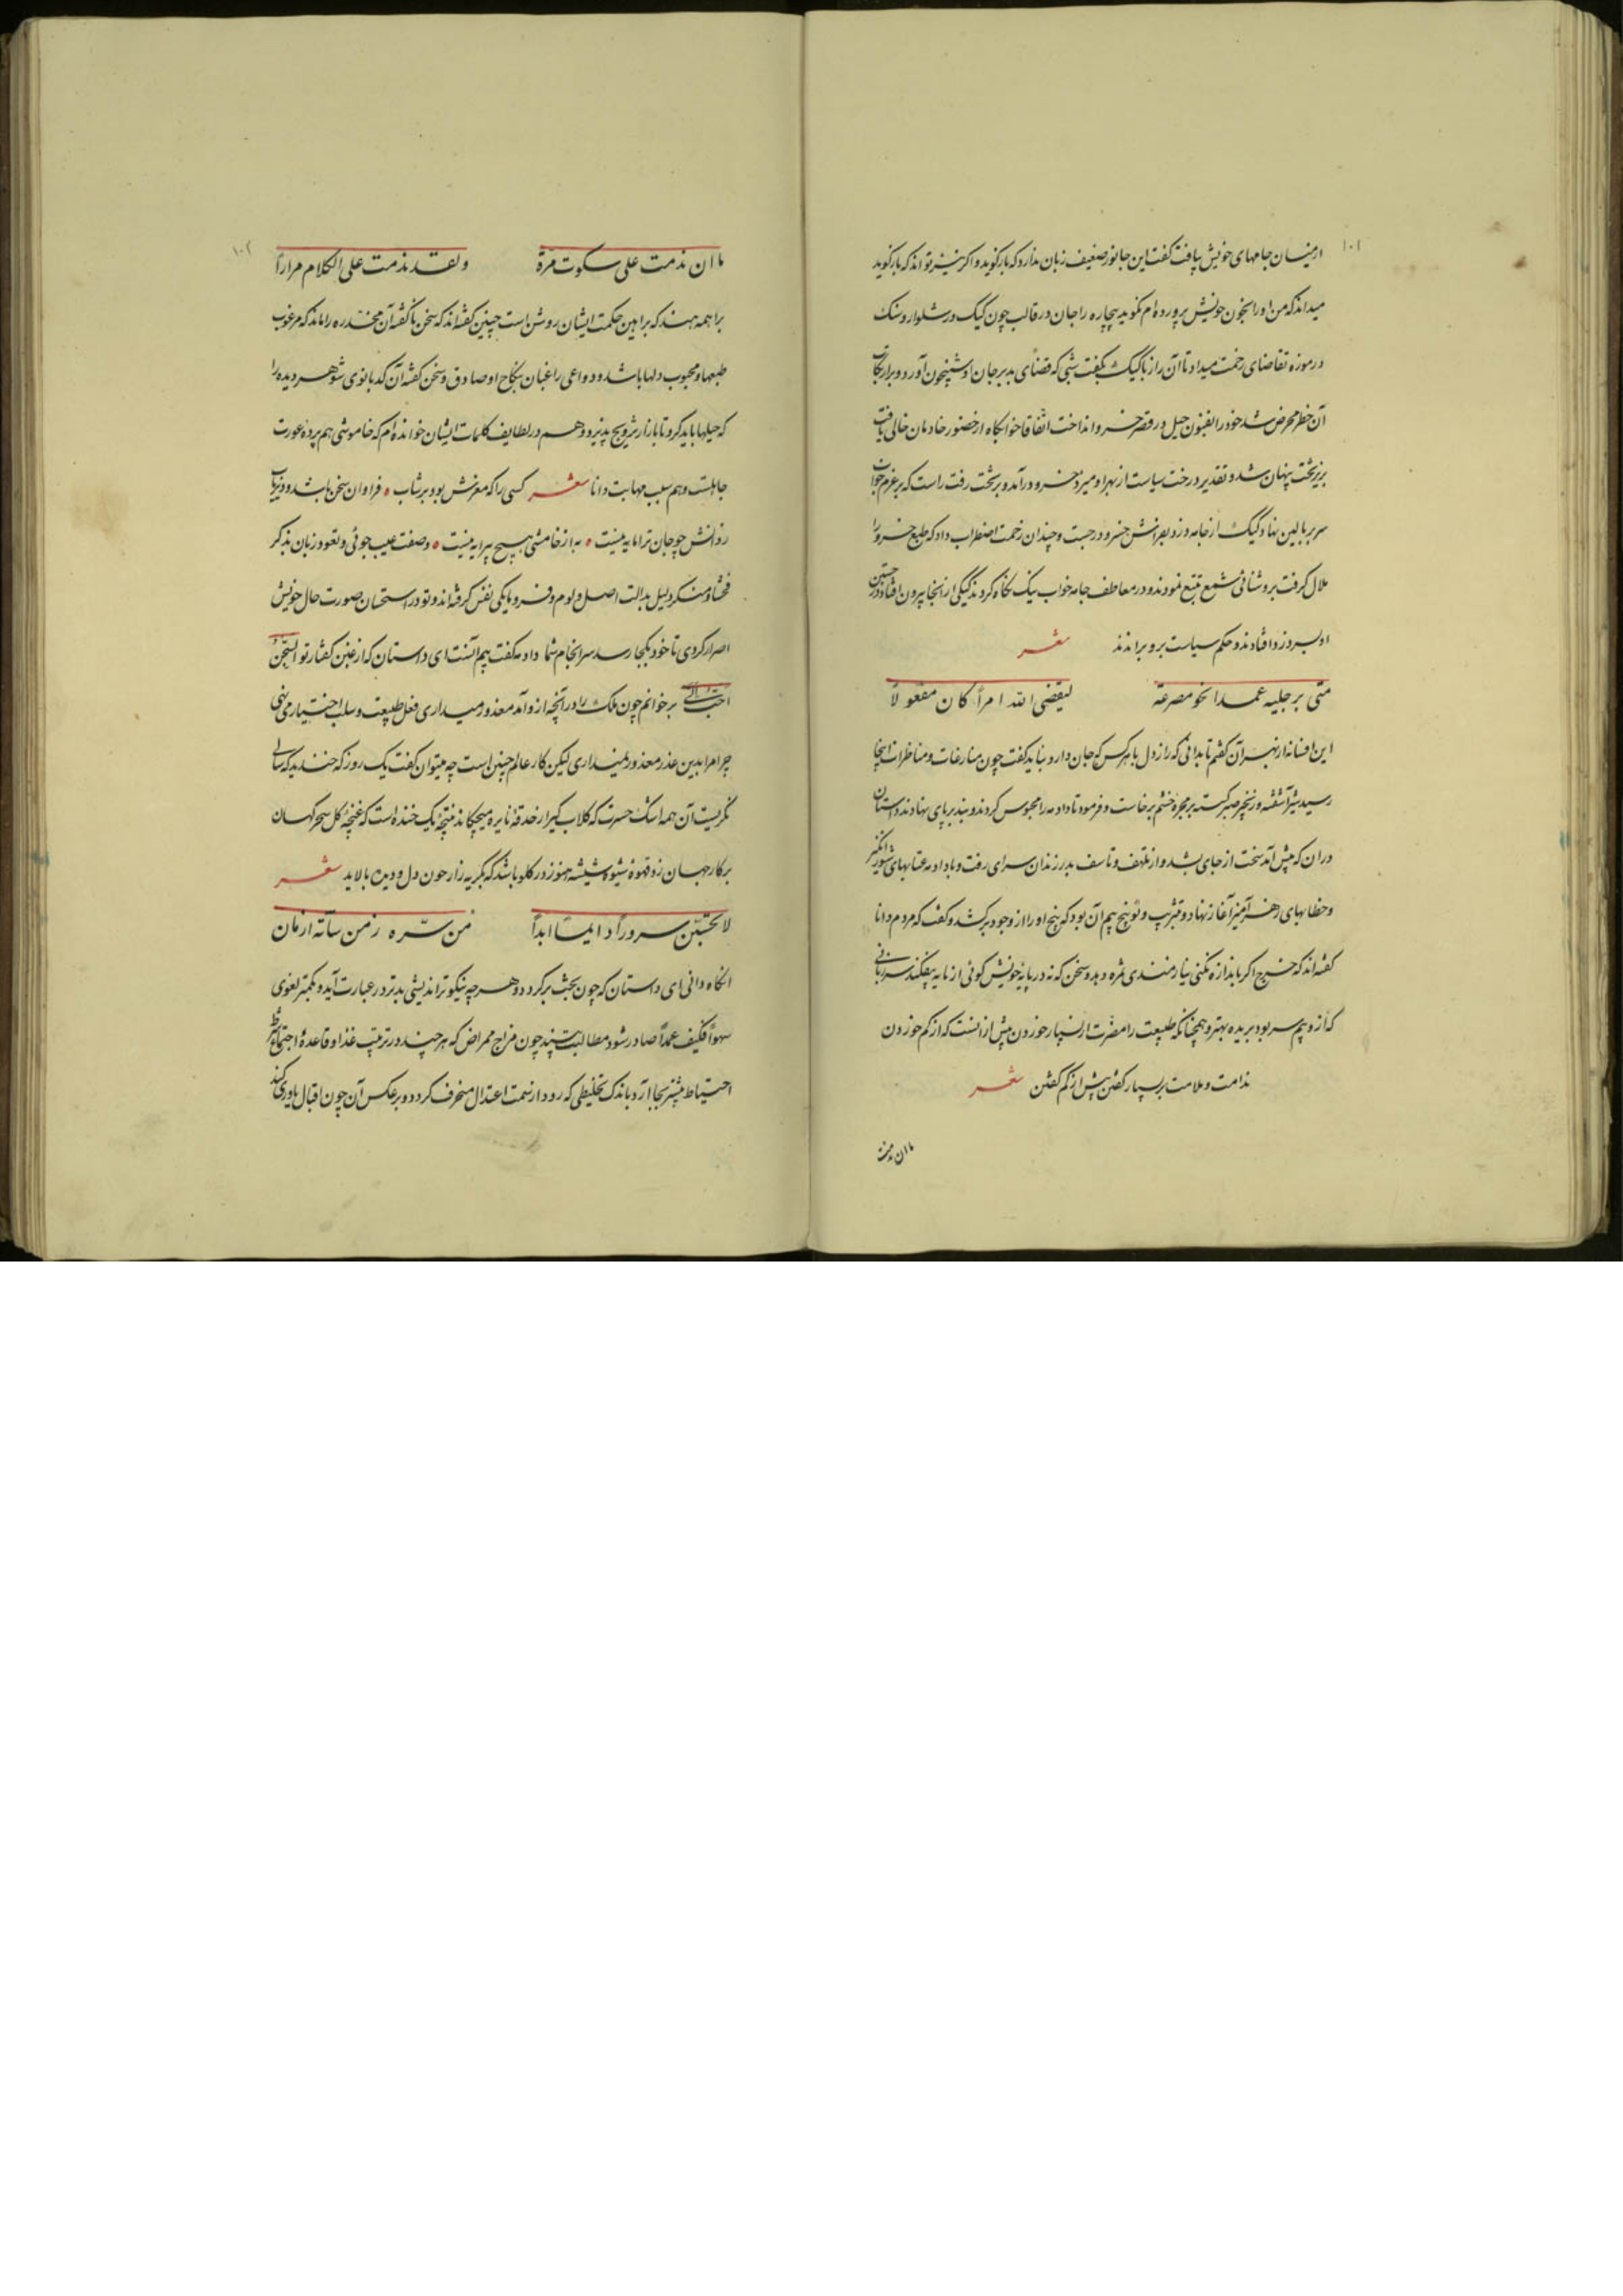 ۱۰۱
از میان جامهای خویش بیافت گفت این جانور ضعیف زبان ندارد که باز گوید و اگر نیز تواند که باز گوید
میداند که من او را بخون خویش پرورده‌ام نگوید بیچاره را جان در قالب چون کیک در شلوار و سنک
در موزه تقاضای زحمت میداد تا آن راز با کیک بگفت شبی که قضای بد بر جان او شبیخون آورد و بر ارتکاب
آن خطر محرض شد خود را بفنون حیل در قصر خسرو انداخت اتفاقا خوابگاه از حضور خادمان خالی یافت
بزیر تخت پنهان شد و تقدیر درخت سیاست از بهر او میزد خسرو درآمد و بر تخت رفت راست که بر عزم خواب
سر ببالین نهاد کیک از جامه دزد بفراش خسرو درجست و چندان زحمت اضطراب داد که طبع خسرو را
ملال گرفت بروشنائی شمع تتبع نمودند و در معاطف جامه خواب نیک نگاه کردند کیکی از آنجا بیرون افتاد در جستن
او بسر دزد افتادند و حکم سیاست برو براندند شعر
متی برجلیه عمدا نحو مصرعه لیقضی الله امرا کان مفعولا
این افسانه از بهر آن گفتم تا بدانی که راز دل با هر کس که جان دارد نباید گفت چون منازعات و مناظرات اینجا
رسید شیر آشفته و زنجیر صبر گسسته بر مجره خشم برخاست و فرمود تا دادمه را محبوس کردند و بند بر پای نهادند داستان
در ان که پیش آمد سخت از جای بشد و از تلهف و تاسف بدر زندان سرای رفت و با دادمه عتابهای شورانگیز
و خطابهای زهر آمیز آغاز نهاد و تثریب و توبیخ بیم آن بود که بیخ او را از وجود برکشد و گفت که مردم دانا
گفته‌اند که خرج اگر باندازه نکنی نیازمندی ثمره دهد و سخن که نه در پایه خویش گوئی از مایه بیفکند سر زبانی
که از و بیم سر بود بریده بهتر و همچنانکه طبیعت را مضرت از بسیار خوردن بیش از آنست که از کم خوردن
ندامت و ملامت بر بسیار گفتن بیش از کم گفتن شعر
ما ان ندمت
۱۰۲
ما ان ندمت علی سکوت مرة ولقد ندمت علی الکلام مرارا
براهمه هند که براهین حکمت ایشان روشن است چنین گفته‌اند که سخن ناگفته آن مخدره را ماند که مرغوب
طبعها و محبوب دلها باشد و دواعی راغبان بنکاح او صادق و سخن گفته آن کدبانوی شوهر دیده را
که حیلها باید کرد تا بازار ترویج پذیرد و هم در لطایف کلمات ایشان خوانده‌ام که خاموشی هم پرده عورت
جاهلست و هم سبب مهابت دانا شعر کسی را که مغزش بود پر شتاب ٭ فراوان سخن باشد و دیریاب
ز دانش چو جان ترا مایه نیست ٭ به از خامشی هیچ پیرایه نیست ٭ و صفت عیب جوئی و تعود زبان بذکر
فحشا و منکر دلیل بدالت اصل و لوم و فرومایگی نفس گرفته‌اند و تو در استحسان صورت حال خویش
اصرار کردی تا خود بکجا رسد سرانجام شما دادمه گفت بیم آنست ای داستان که از غبن گفتار تو السجن
احب الی برخوانم چون ملک را در آنچه ازو آمد معذور میداری فعل طبیعت و سلب اختیار می‌نهی
چرا مرا بدین عذر معذور نمیداری لیکن کار عالم چنین است چه میتوان گفت یک روز که خندید که سالی
نگریست آن همه اشک حسرت که گلاب گیر از حدقه نایره میچکاند نتیجه یک خنده است که غنچه گل سحرگهان
بر کار جهان زد قهوه شیوه شیشه هنوز در گلو باشد که بگریه زار خون دل و دیده بالاید شعر
لا تحسبن سرورا دایما ابدا من سره زمن ساءته ازمان
انگاه دانی ای داستان که چون بخت برگردد هر چه نیکوتر اندیشی بدتر در عبارت آید و بکمتر لغوی
سهوا فکیف عمدا صادر شود مطالبت بیند چون مزاج ممراض که هر چند در ترتیب غذا و قاعده احتما شرط
احتیاط بیشتر بجا آرد باندک تخلیطی که رود از سمت اعتدال منحرف گردد و بر عکس آن چون اقبال یاوری کند